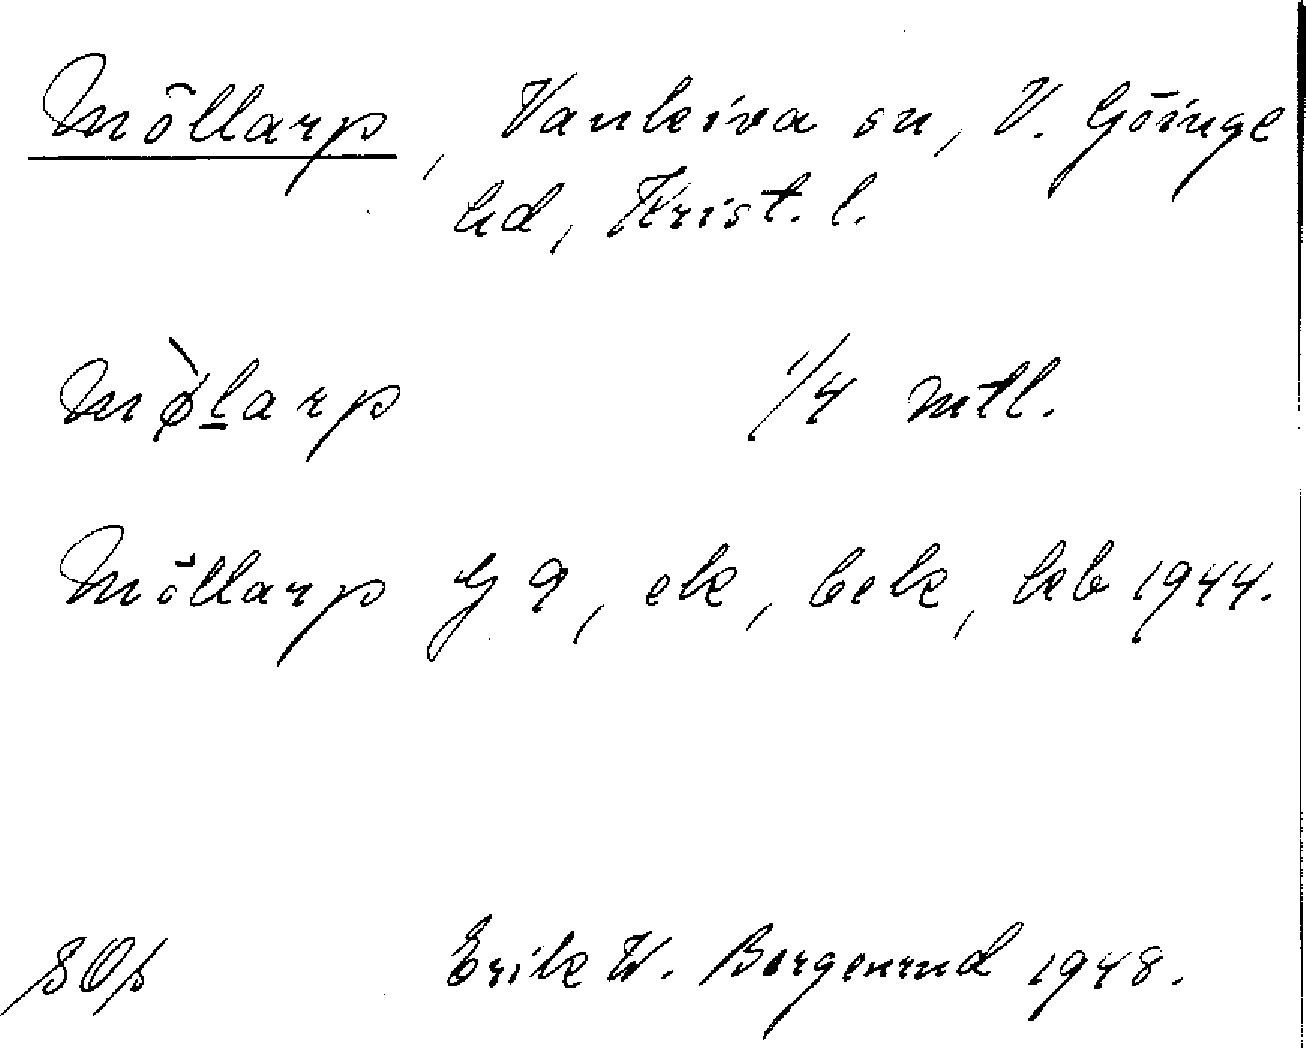 Möllarp, Vankiva sn, V. Göinge
hd, Krist. l.
mø̀l̲arp 1/4 mtl.
Möllarp G 9, ek, bek, hb 1944.
SOA
Erik W. Borgenrud 1948.